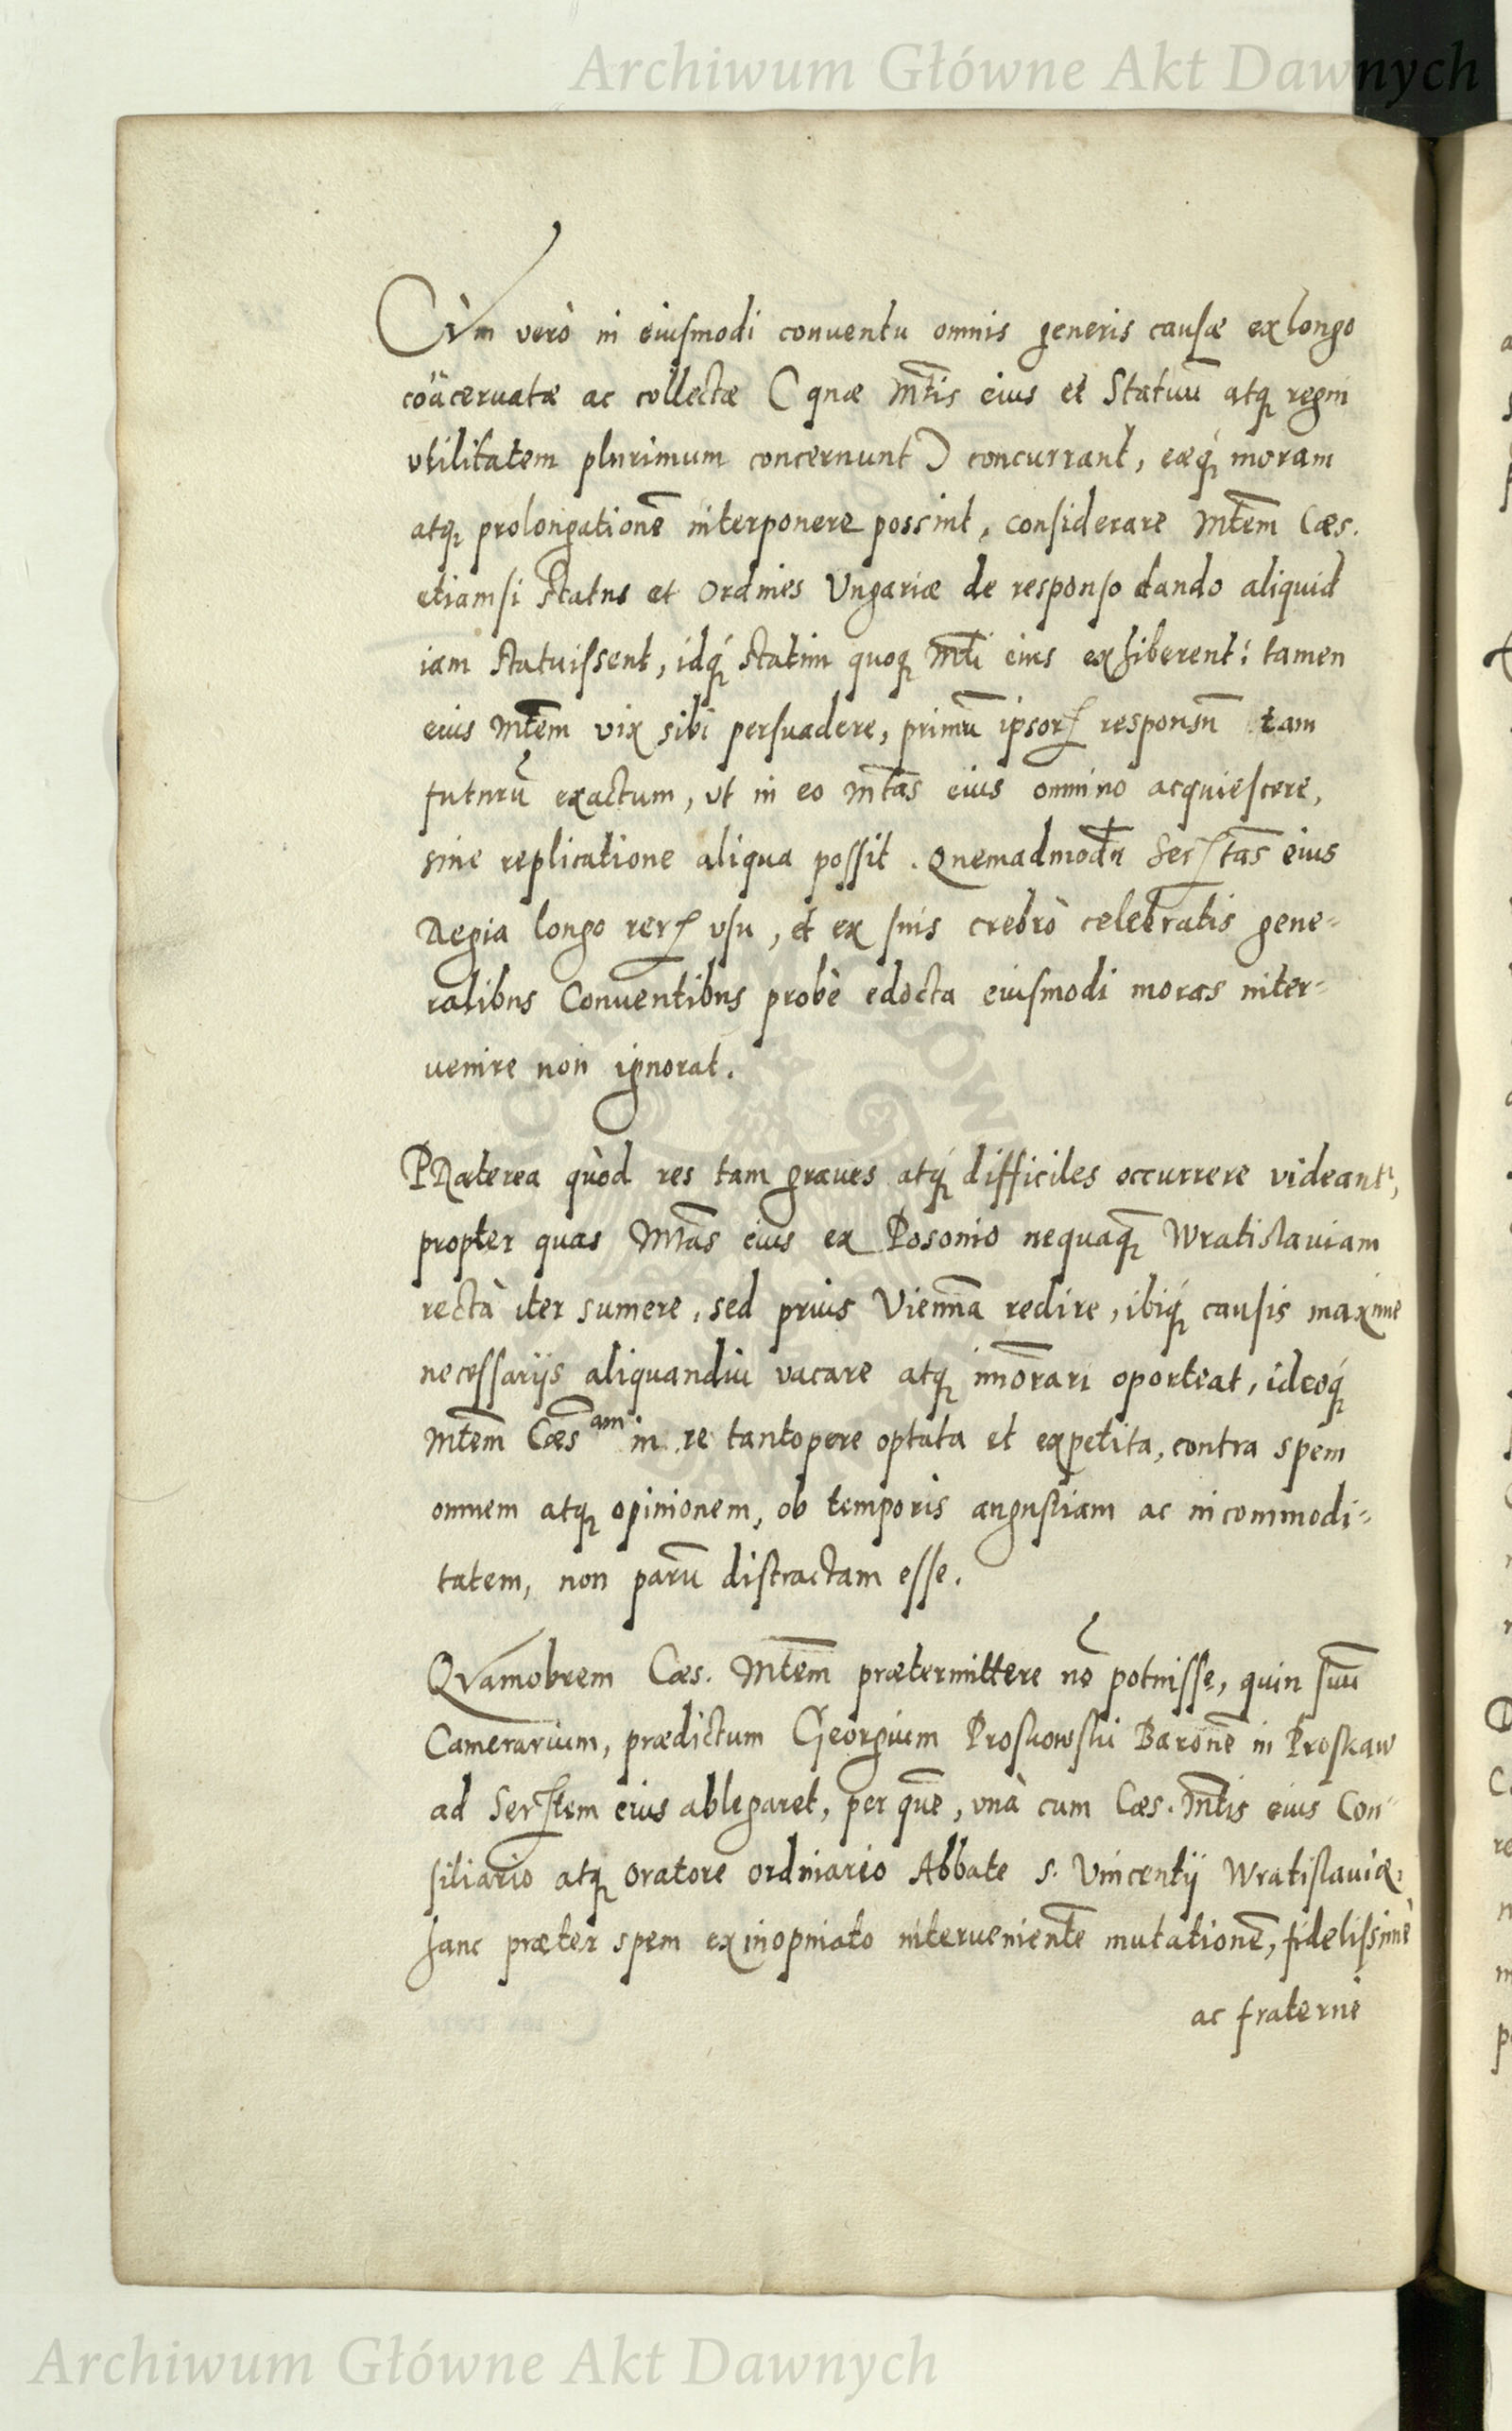 Archiwum Główne Akt Dawnych
Cùm verò in eiusmodi conuentu omnis generis causæ ex longo
coäceruatæ ac collectæ (quæ Mt̃is eius et Statuũ atq̨ regni
vtilitatem plurimum concernunt) concurrant, eæq̨́ moram
atq̨ prolongationẽ interponere possint, considerare Mt̃em Cæs.
etiamsi Status et Ordines Vngariæ de responso dando aliquid
iam statuissent, idq̨́ statim quoq̨ Mt̃i eius exhiberent: tamen
eius Mt̃em vix sibi persuadere, primũ ipsorꝝ responsũ tam
futurũ exactum, vt in eo Mt̃as eius omnino acquiescere,
sine replicatione aliqua possit. Quemadmodũ Serꝭtas eius
Regia longo rerꝝ vsu, et ex suis crebrò celebratis gene-
ralibus Conuentibus probè edocta eiusmodi moras inter-
uenire non ignorat.
PRæterea quòd res tam graues atq̨́ difficiles occurrere videantʳ,
propter quas Mt̃as eius ex Posonio nequaq̃ Wratislauiam
rectà iter sumere, sed prius Viennã redire, ibiq̨́ causis maximè
necessarijs aliquandiu vacare atq̨ im̃orari oporteat, ideoq̨́
Mt̃em Cæsᵃᵐ in re tantopere optata et expetita, contra spem
omnem atq̨ opinionem, ob temporis angustiam ac incommodi-
tatem, non parũ distractam esse.
QVamobrem Cæs. Mt̃em prætermittere nõ potuisse, quin suũ
Camerarium, prædictum Georgium Proskowski Baronẽ in Proskaw
ad Serꝭtem eius ablegaret, per quẽ, vnà cum Cæs. Mt̃is eius Con-
siliario atq̨ oratore ordinario Abbate S. Vincentij Wratislauiæ,
hanc præter spem ex inopinato interuenientẽ mutationẽ, fidelissimè
ac fraternè
Archiwum Główne Akt Dawnych